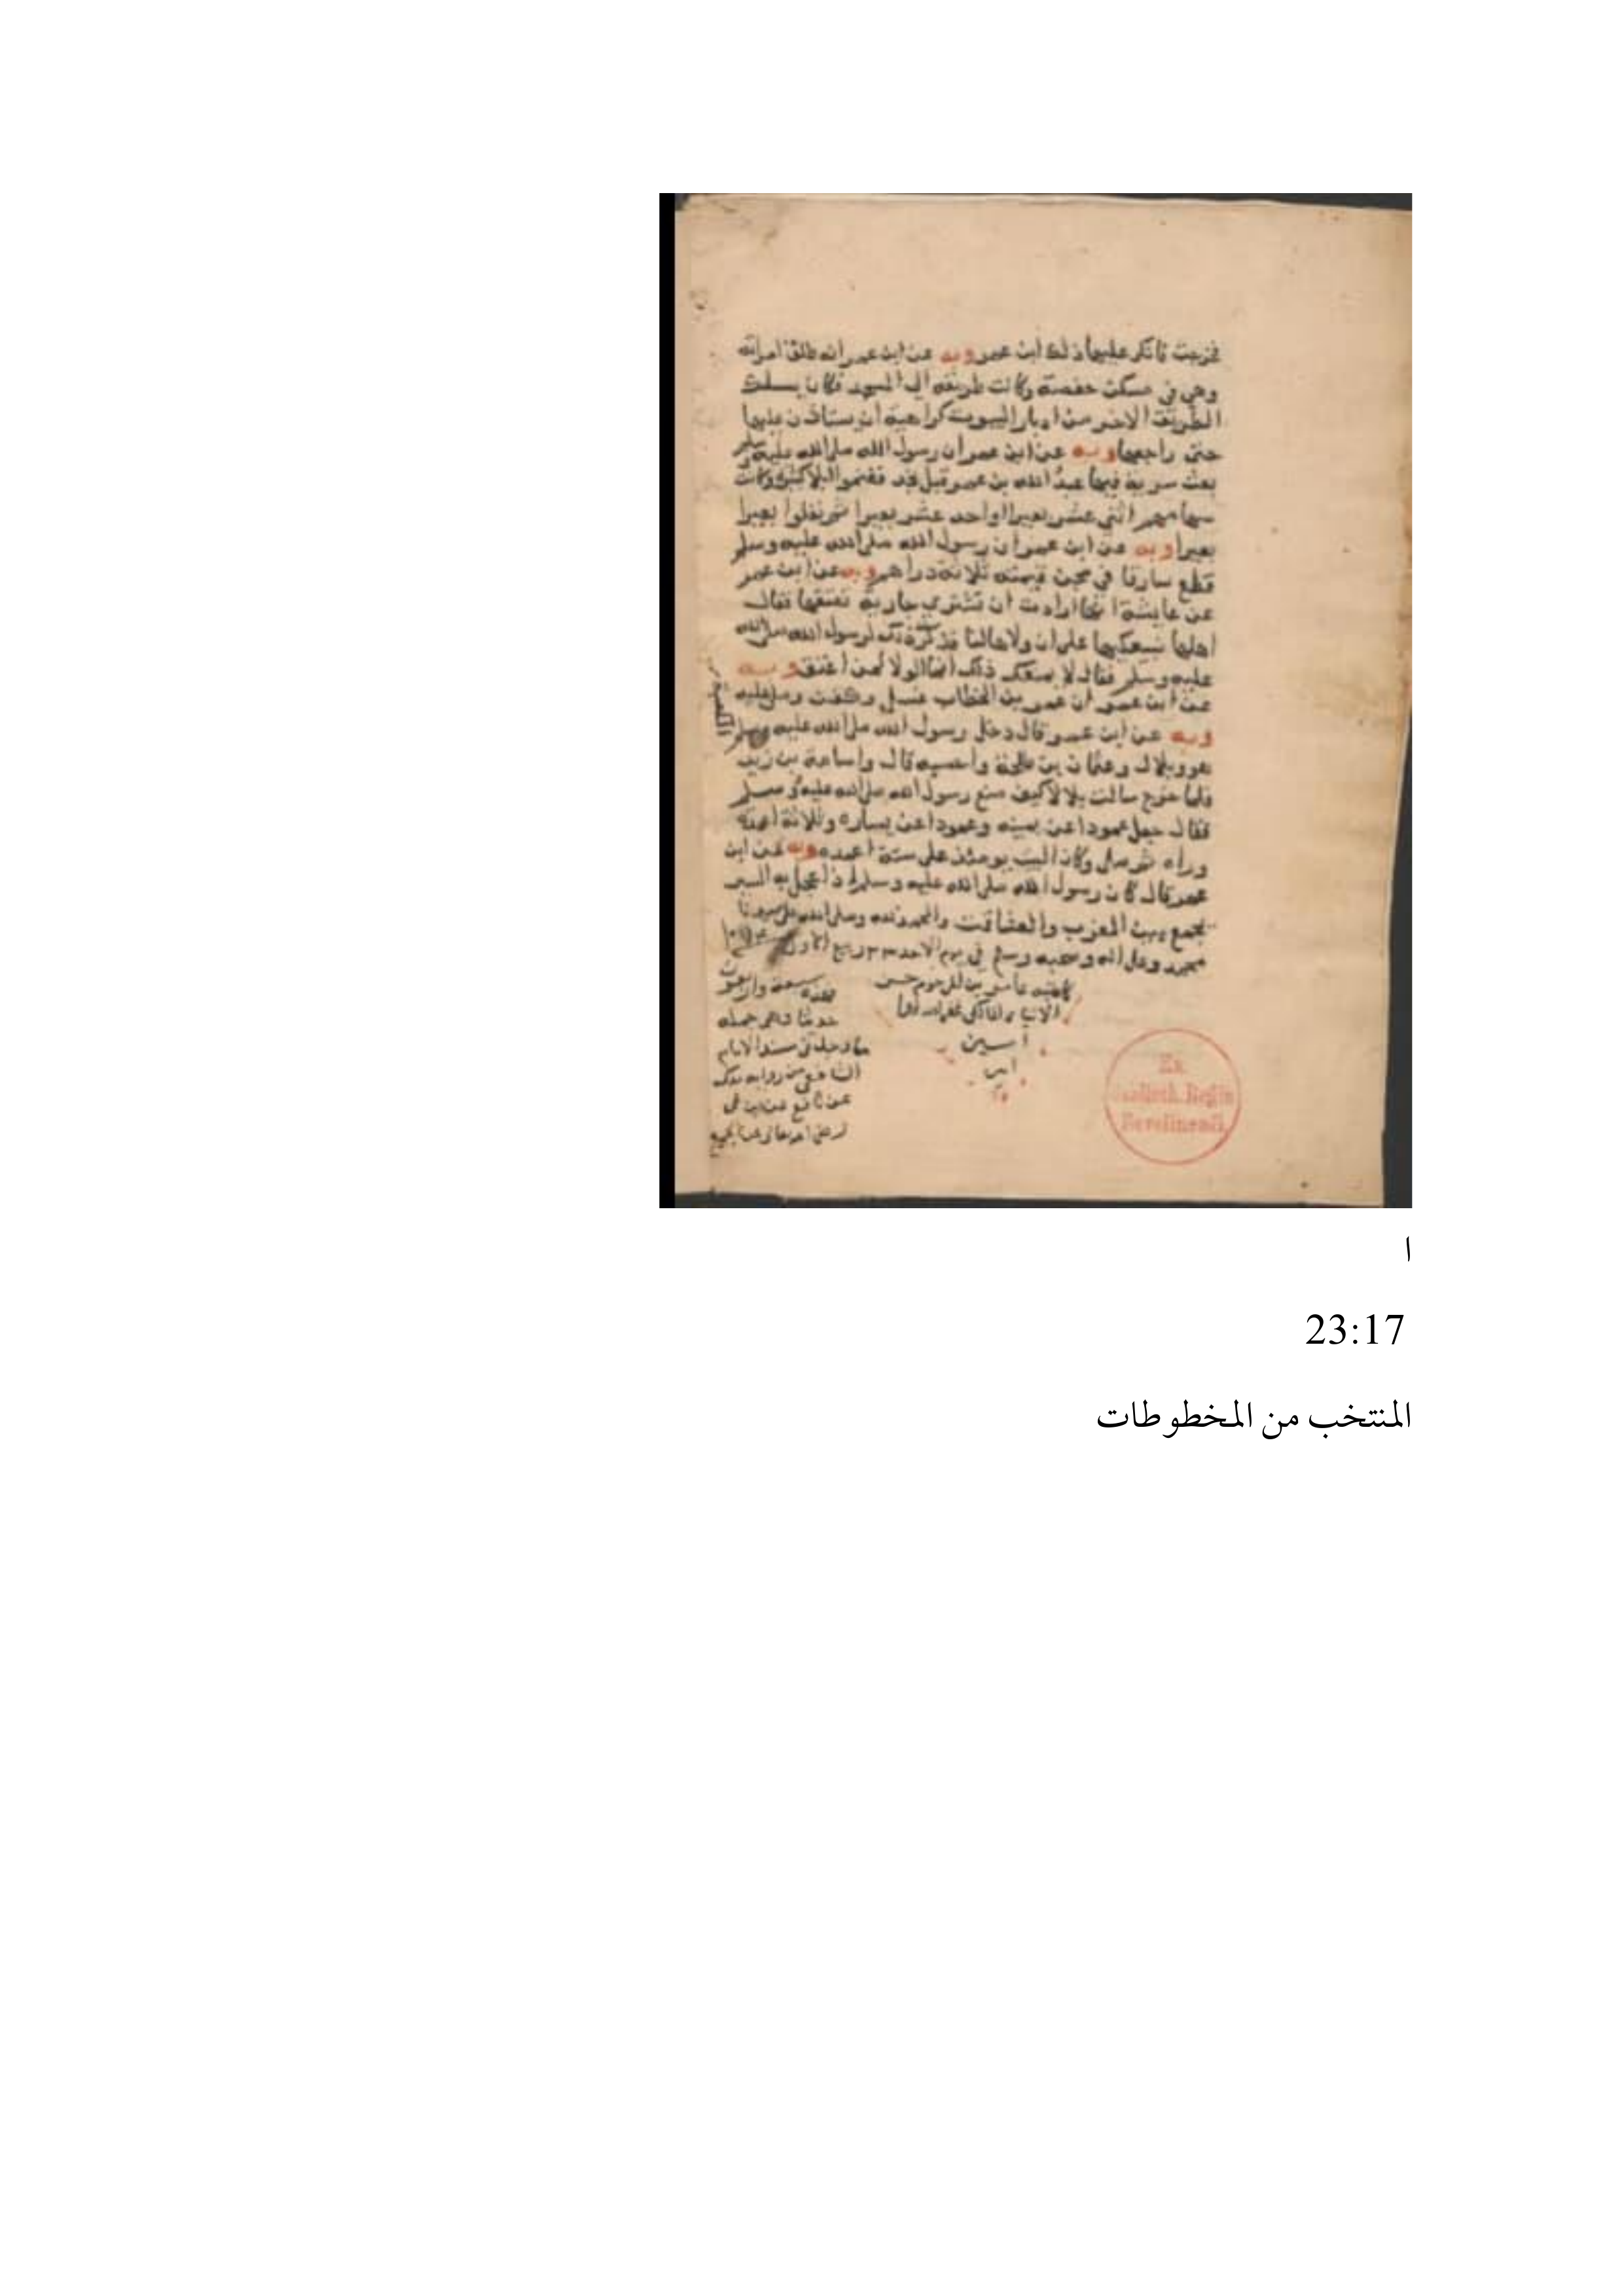 فخرجت فانكر عليها ذلك ابن عمر وبه عن ابن عمر انه طلق امراته
وهي في مسكن حفصة وكانت طريقه الى المسجد فكان يسلك
الطريق الاخر من ادبار البيوت كراهية ان يستاذن عليها
حتى راجعها وبه عن ابن عمر ان رسول الله صلى الله عليه وسلم
بعث سرية فيها عبد الله بن عمر قبل نجد فغنموا ابلا كثيرة وكانت
سهامهم اثني عشر بعيرا او احد عشر بعيرا ثم نفلوا بعيرا
بعيرا وبه عن ابن عمر ان رسول الله صلى الله عليه وسلم
قطع سارقا في مجن قيمته ثلاثة دراهم وبه عن ابن عمر
عن عايشة انها ارادت ان تشتري جارية تعتقها فقال
اهلها نبيعكيها على ان ولاها لنا فذكرت ذلك لرسول الله صلى الله
عليه وسلم فقال لا يمنعك ذلك انما الولا لمن اعتق وبه
عن ابن عمر ان عمر بن الخطاب غسل وكفن وصلي عليه
وبه عن ابن عمر قال دخل رسول الله صلى الله عليه وسلم
الكعبة
هو وبلال وعثمان بن طلحة واحسبه قال واسامة بن زيد
فلما خرج سالت بلالا كيف صنع رسول الله صلى الله عليه وسلم
فقال جعل عمودا عن يمينه وعمودا عن يساره وثلاثة اعمدة
وراه ثم صلى وكان البيت يومئذ على ستة اعمده وبه عن ابن
عمر قال كان رسول الله صلى الله عليه وسلم اذا عجل به السير
يجمع بين المغرب والعشا تمت والحمد لله وصلى الله على سيدنا
محمد وعلى اله وصحبه وسلم في يوم الاحد ٢٣ ربيع الاول
كاتبه عامر بن المرحوم حسن
امين
امين
فهذه سبعة واربعون
حديثا وهي جملة
ما وجد في مسند الامام
الشافعي من رواية مالك
عن نافع عن ابن عمر
رضي الله تعالى عن الجميع
Ex
Biblioth. Regia
Berolinensi.
ا
23:17
المنتخب من المخطوطات